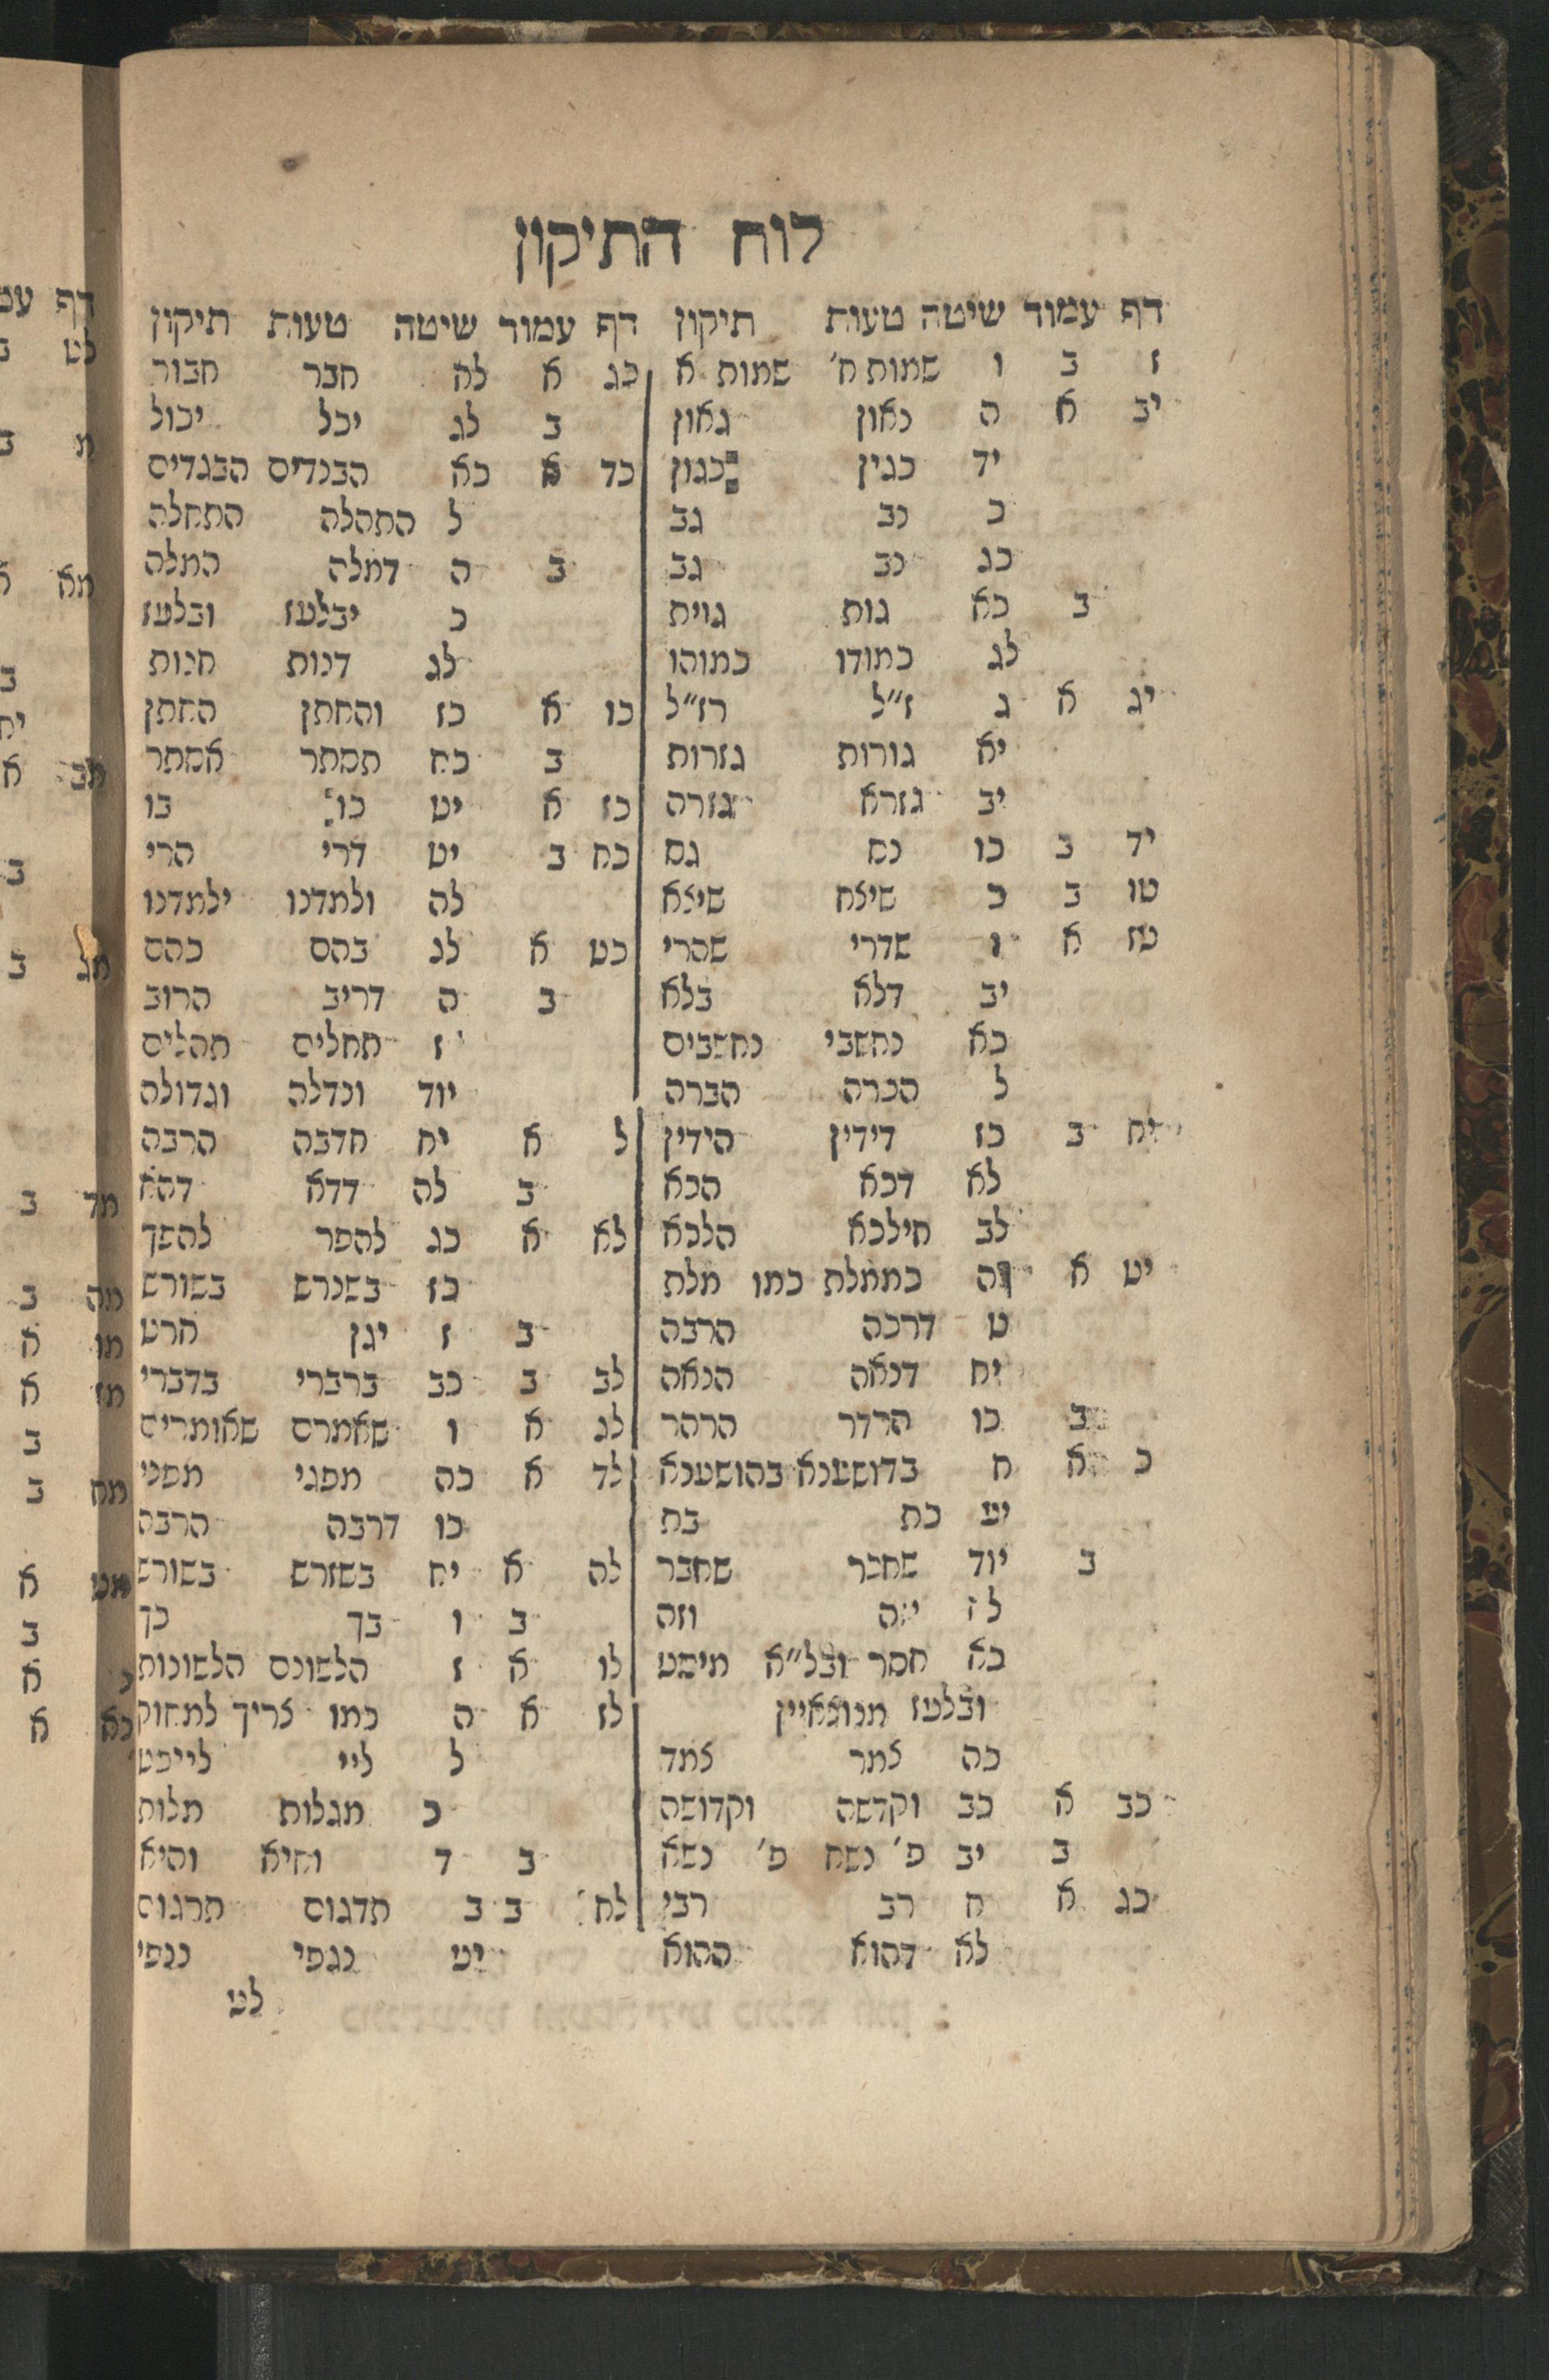 לוח התיקון
דף עמוד שיטה טעות תיקון
ז ב ו שמות ח' שמות א
יב א ה כאון גאון
יד כגין כגון
כ כב גב
כג כב גב
ב כא גות גוית
לג כמודו כמוהו
יג א ג ז"ל רז"ל
יא גורות גזרות
יב גזרא גזרה
יד ב כו כס גס
טו ב כ שיצח שיצא
טז א ו שדרי שהרי
יב דלא בלא
כא כחשבי כחשבים
ל הכרה הברה
יח ב כז דידין הידין
לא דכא הכא
לב חילכא הלכא
יט א ה כממלת כמו מלת
ט דרכה הרבה
יח דכאה הנאה
ב כו הרדר הרהר
כ א ח בדושענא בהושענא
יט כת בת
ב יוד שחכר שחבר
וזה
כא חסר ובל"א מיסט
ובלעז
כה צמר צמד
כב א כב וקדשה וקדושה
ב יב פ' נשח פ' נשא
כג א ח רב רבי
לא דהוא ההוא
דף עמוד שיטה טעות תיקון
כג א לה חבר חבור
ב לג יכל יכול
כד א כא הבנדים הבגדים
ל התהלה התחלה
ב ה דמלה המלה
כ יבלעז ובלעז
לג דנות חנות
כו א כז והחתן החתן
ב כח תסתר אסתר
כז א יט כו בו
כח ב יט דרי הרי
לה ולמדנו ילמדנו
כט א לג בהם כהם
ב ה דריב הרוב
ז תחלים תהלים
יוד ונדלה וגדולה
ל א יח חדבה הרבה
ב לה דדא דהא
לא א כג להפר להפך
כז בשכרש בשורש
ב ז יגן חרט
לב ב כב ברברי בדברי
לג א ו שאמרם שאומרים
לד א כה מפגי מפני
כו דרבה הרבה
לה א יח בשזרש בשורש
ב ו בך כך
לו א ז הלשונם הלשונות
לז א ה כמו צריך למחוק
ל ליי לייכט
כ מגלות מלות
ב ד וחיא והיא
לח ב ב תדגום תרגום
יט כגפי כנפי
לט